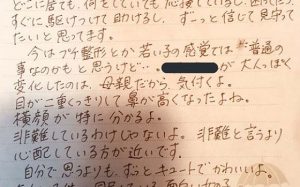 どこに居ても、何をしていても応援しているし、困ったら
すぐに駆けつけて助けるし、ずーっと信じて見守って
たいと思ってます。
今はプチ整形とか若い子の感覚では普通の
事なのかもと思うけど…。 が大人っぽく
変化したのは、母親だから気付くよ。
目が二重くっきりして鼻が高くなったよね。
横顔が特に分かるよ。
非難しているわけじゃないよ。非難と言うより
心配している方が近いです。
自分で思うよりも、ずっとキュートでかわいいよ。